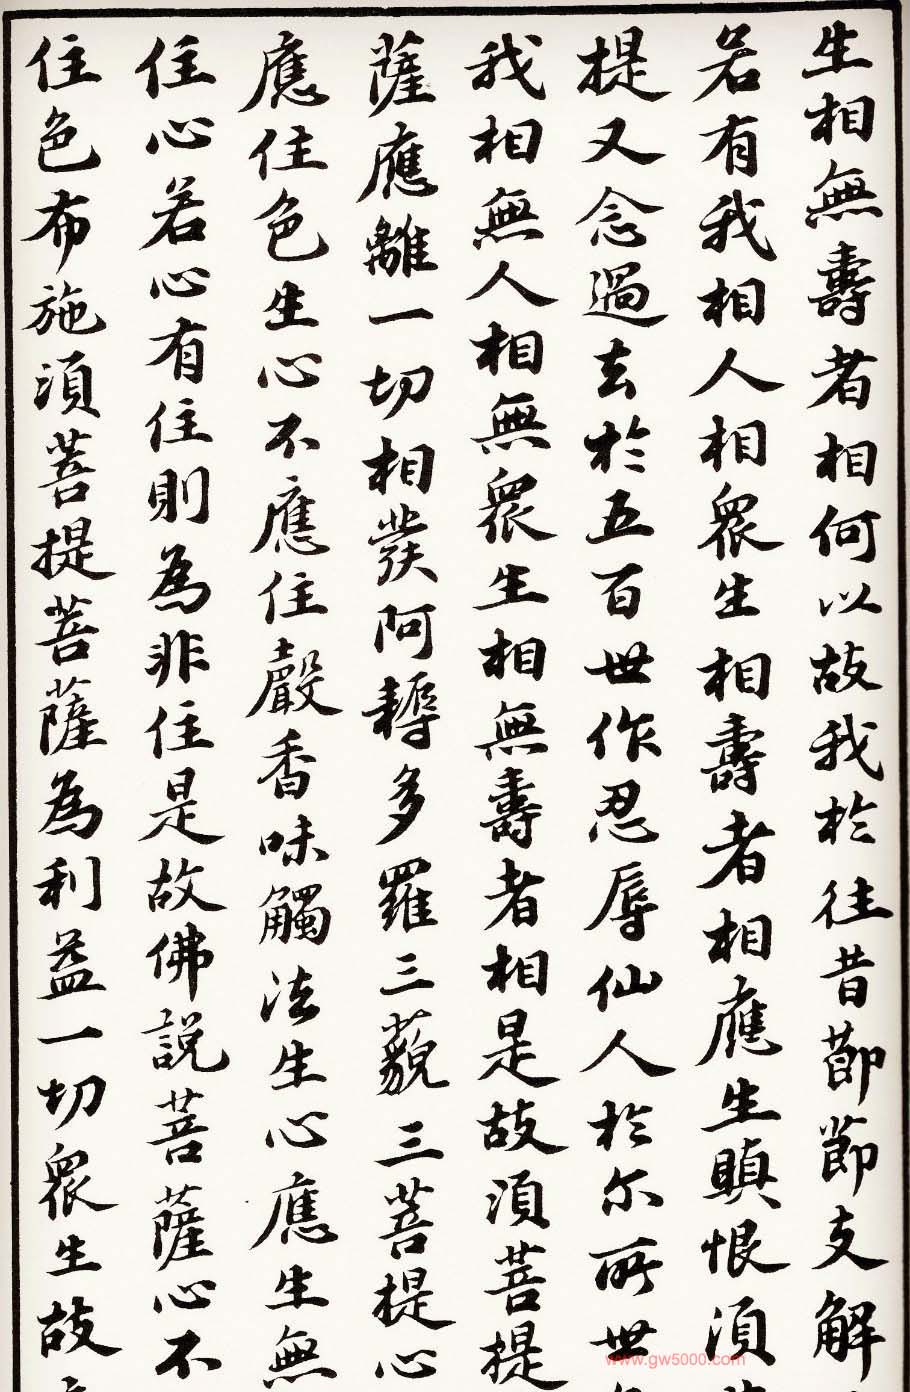 生相無壽者相何以故我於往昔節節支解
若有我相人相衆生相壽者相應生瞋恨須
提又念過去於五百世作忍辱仙人於尔所世
我相無人相無衆生相無壽者相是故須菩提
薩應離一切相發阿耨多羅三藐三菩提心
應住色生心不應住聲香味觸法生心應生無
住心若心有住則為非住是故佛說菩薩心不
住色布施須菩提菩薩為利益一切衆生故
www.gw5000.com